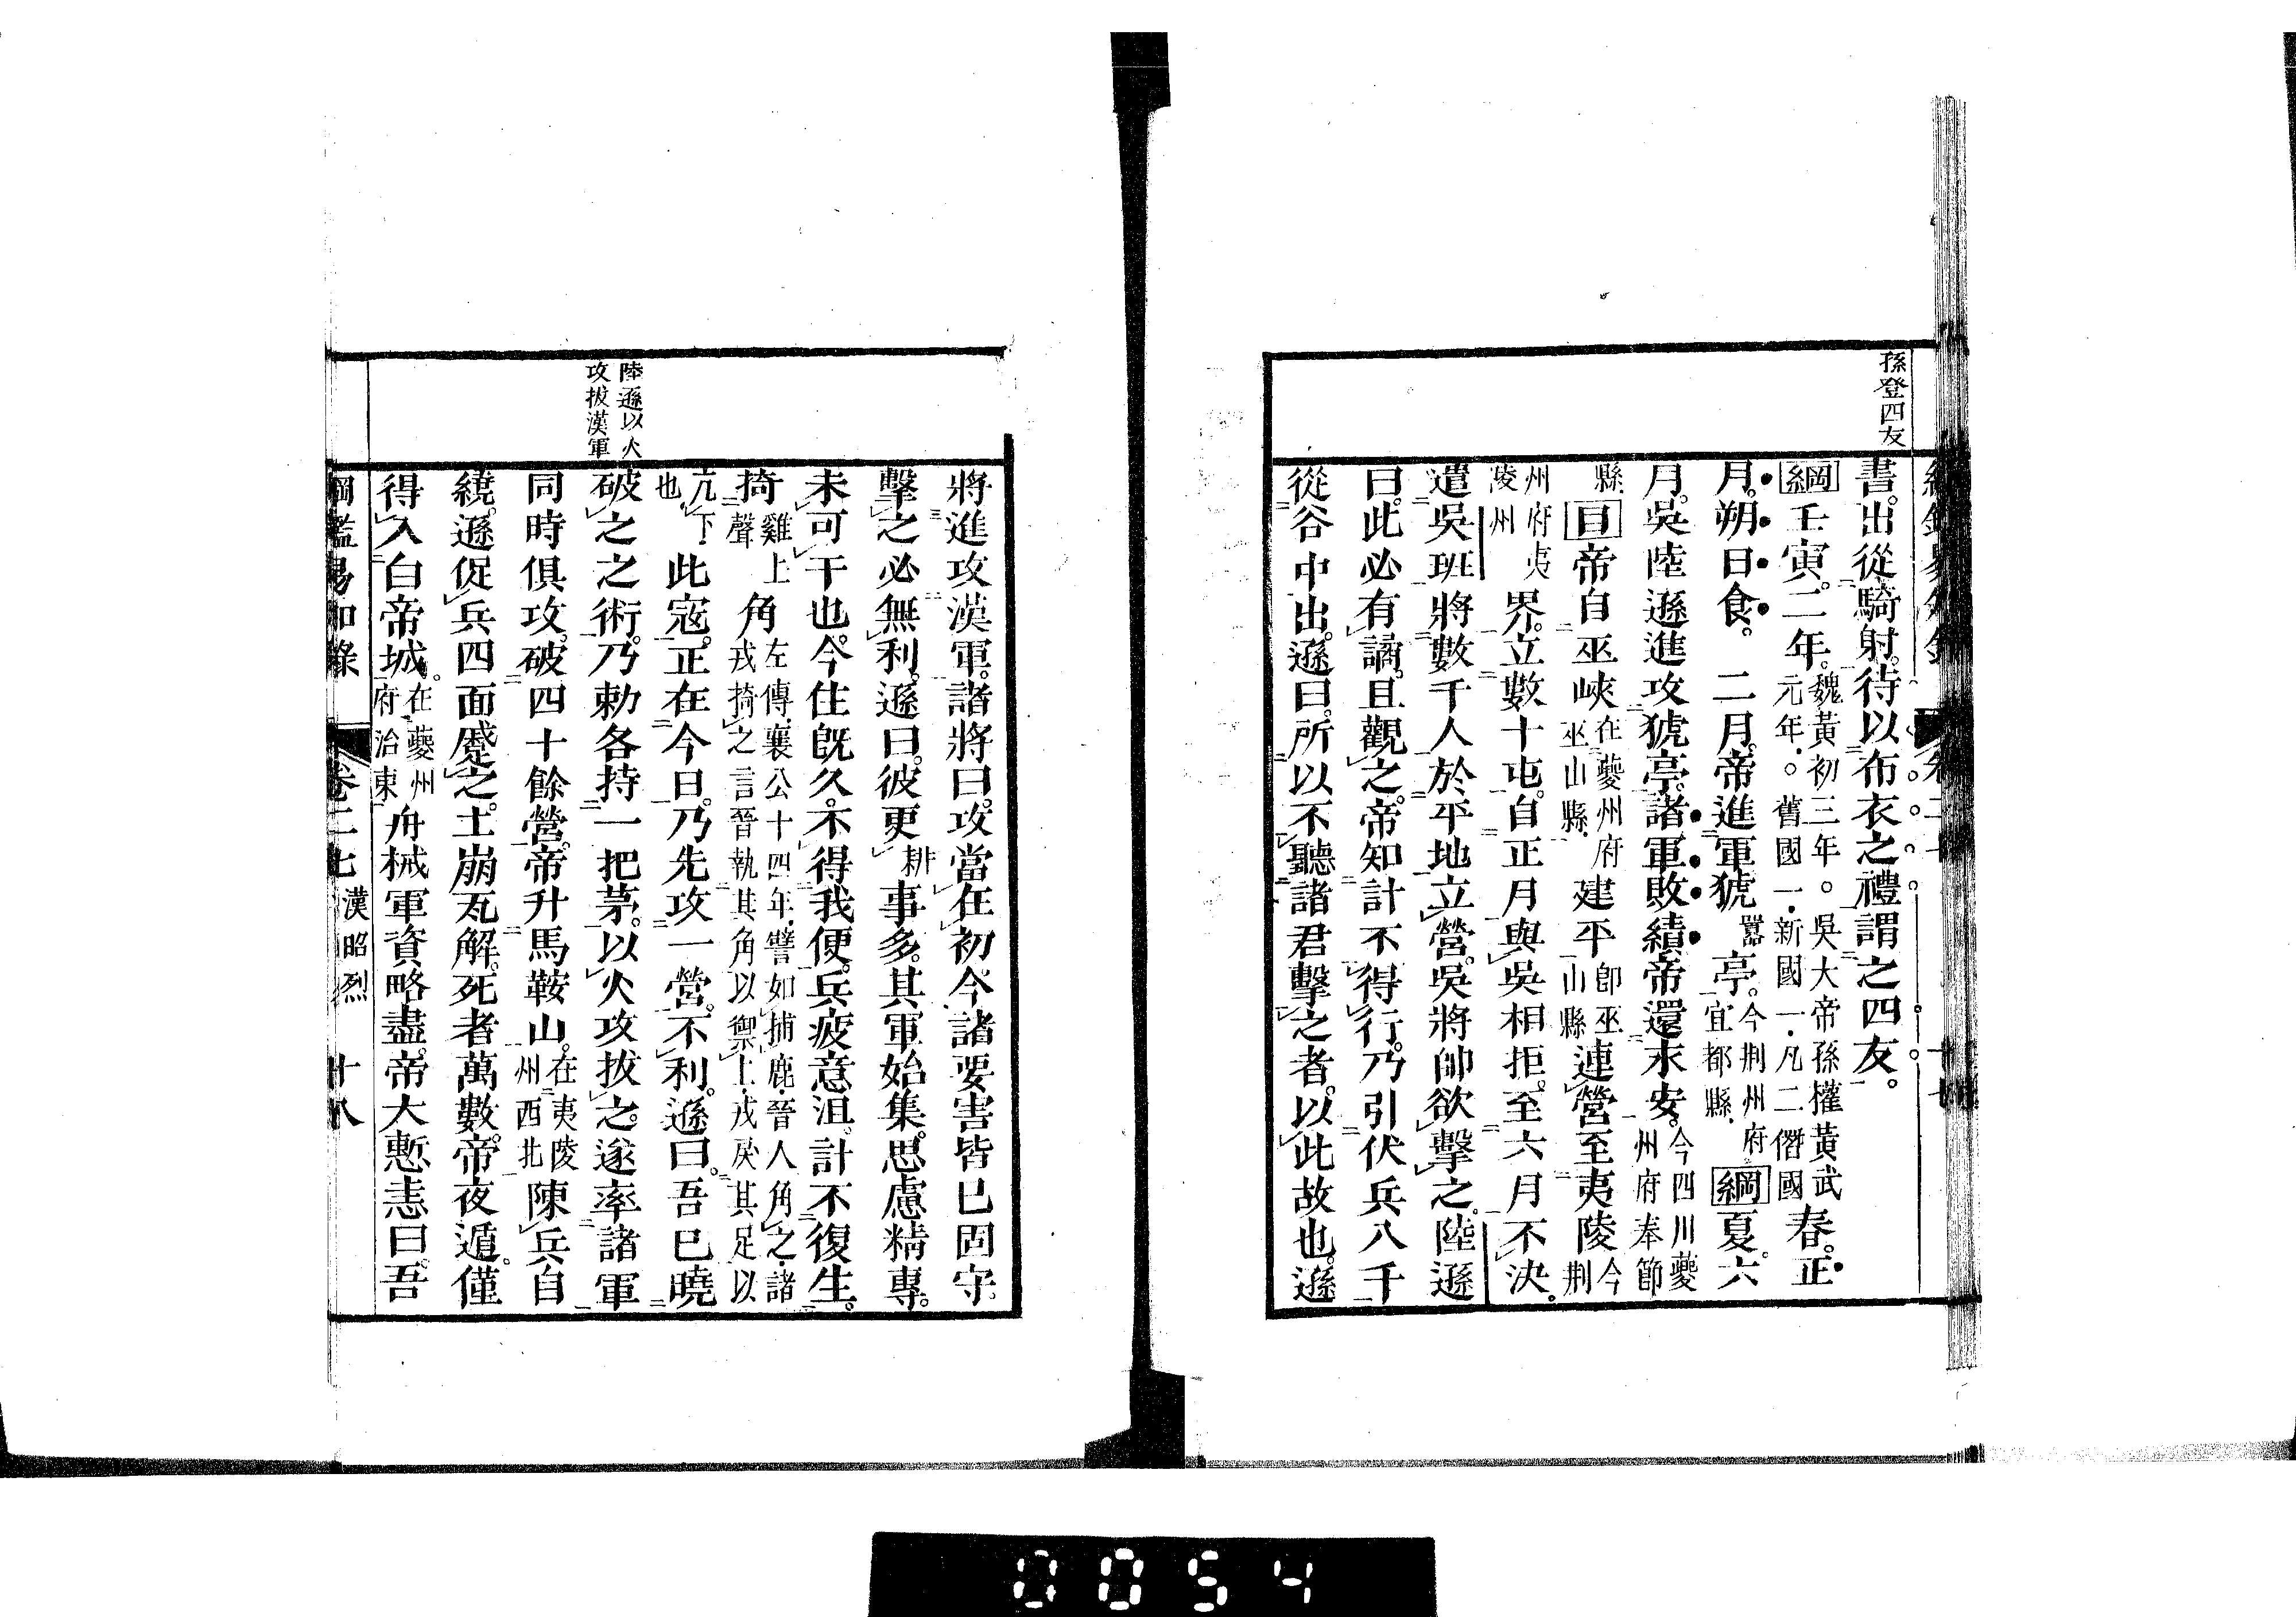 孫登四友
書。出從騎射。待以布衣之禮。謂之四友。
綱壬寅。二年。魏黃初三年。○吳大帝孫權黃武元年。○舊國一。新國一。凡二僭國春。正
月。朔。日食。二月。帝進軍猇囂亭。今荆州府宜都縣綱夏。六
月。吳陸遜進攻猇亭。諸軍敗績。帝還永安。今四川夔州府奉節
縣目帝自巫峽在夔州府巫山縣建平即巫山縣連營至夷陵今荆
州府夷陵州界。立數十屯。自正月與吳相拒。至六月不決。
遣吳班將數千人於平地立營。吳將帥欲擊之。陸遜
曰。此必有譎。且觀之。帝知計不得行。乃引伏兵八千
從谷中出。遜曰。所以不聽諸君擊之者。以此故也。遜
陸遜以火
攻拔漢軍
將進攻漢軍。諸將曰。攻當在初今諸要害皆已固守。
擊之必無利。遜曰。彼更耕事多。其軍始集。思慮精專。
未可干也。今住既久。不得我便。兵疲意沮。計不復生。
掎雞上聲角左傳。襄公十四年。譬如捕鹿。晉人角之。諸戎掎之言晉執其角以禦上。戎戾其足以
亢下也此寇。正在今日。乃先攻一營。不利。遜曰。吾已曉
破之之術。乃勅各持一把茅。以火攻拔之。遂率諸軍
同時俱攻。破四十餘營。帝升馬鞍山。在夷陵州西北陳兵自
繞。遜促兵四面蹙之。土崩瓦解。死者萬數。帝夜遁。僅
得入白帝城。在夔州府治東舟械軍資略盡。帝大慙恚曰。吾
綱鑑易知錄 卷二七 漢昭烈 十八
0054